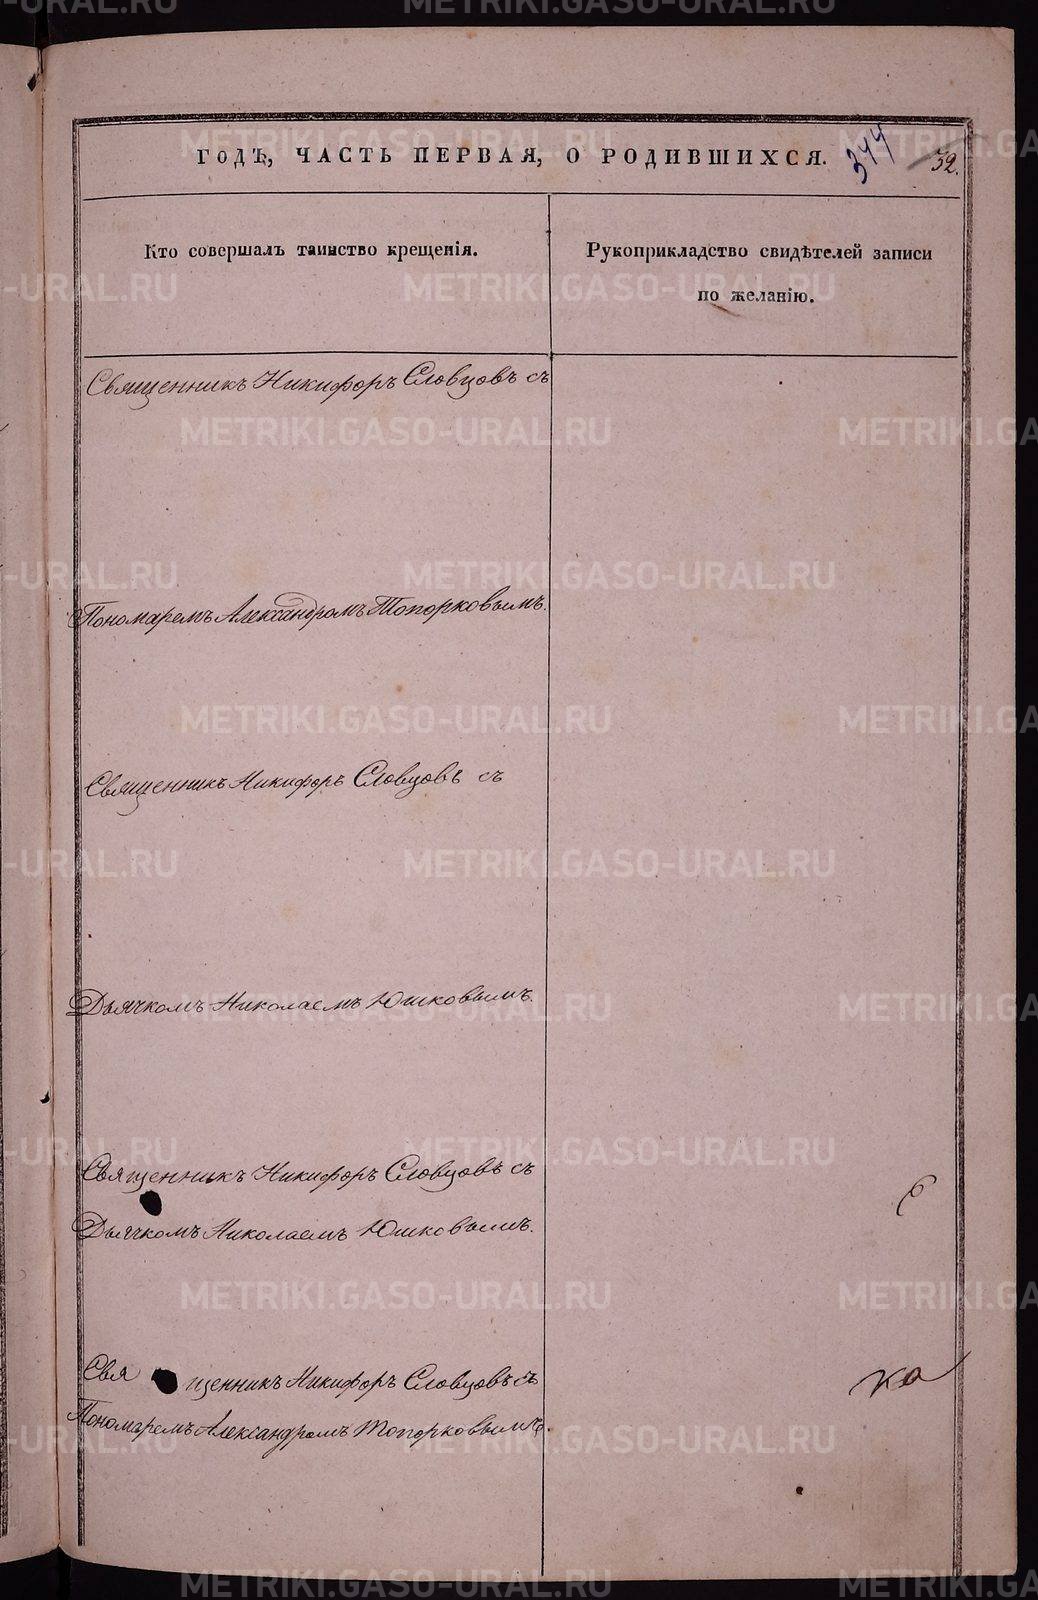 ГОДЪ, ЧАСТЬ ПЕРВАЯ, О РОДИВШИХСЯ.
344
32.
Кто совершалъ таинство крещенія.
Рукоприкладство свидѣтелей записи
по желанію.
Священникъ Никифоръ Словцовъ съ
Пономаремъ Александромъ Топорковымъ.
Священникъ Никифоръ Словцовъ съ
Дьячкомъ Николаемъ Юшковымъ.
Священникъ Никифоръ Словцовъ съ
Дьячкомъ Николаемъ Юшковымъ.
Священникъ Никифоръ Словцовъ съ
ка
Пономаремъ Александромъ Топорковымъ.
METRIKI.GASO-URAL.RU